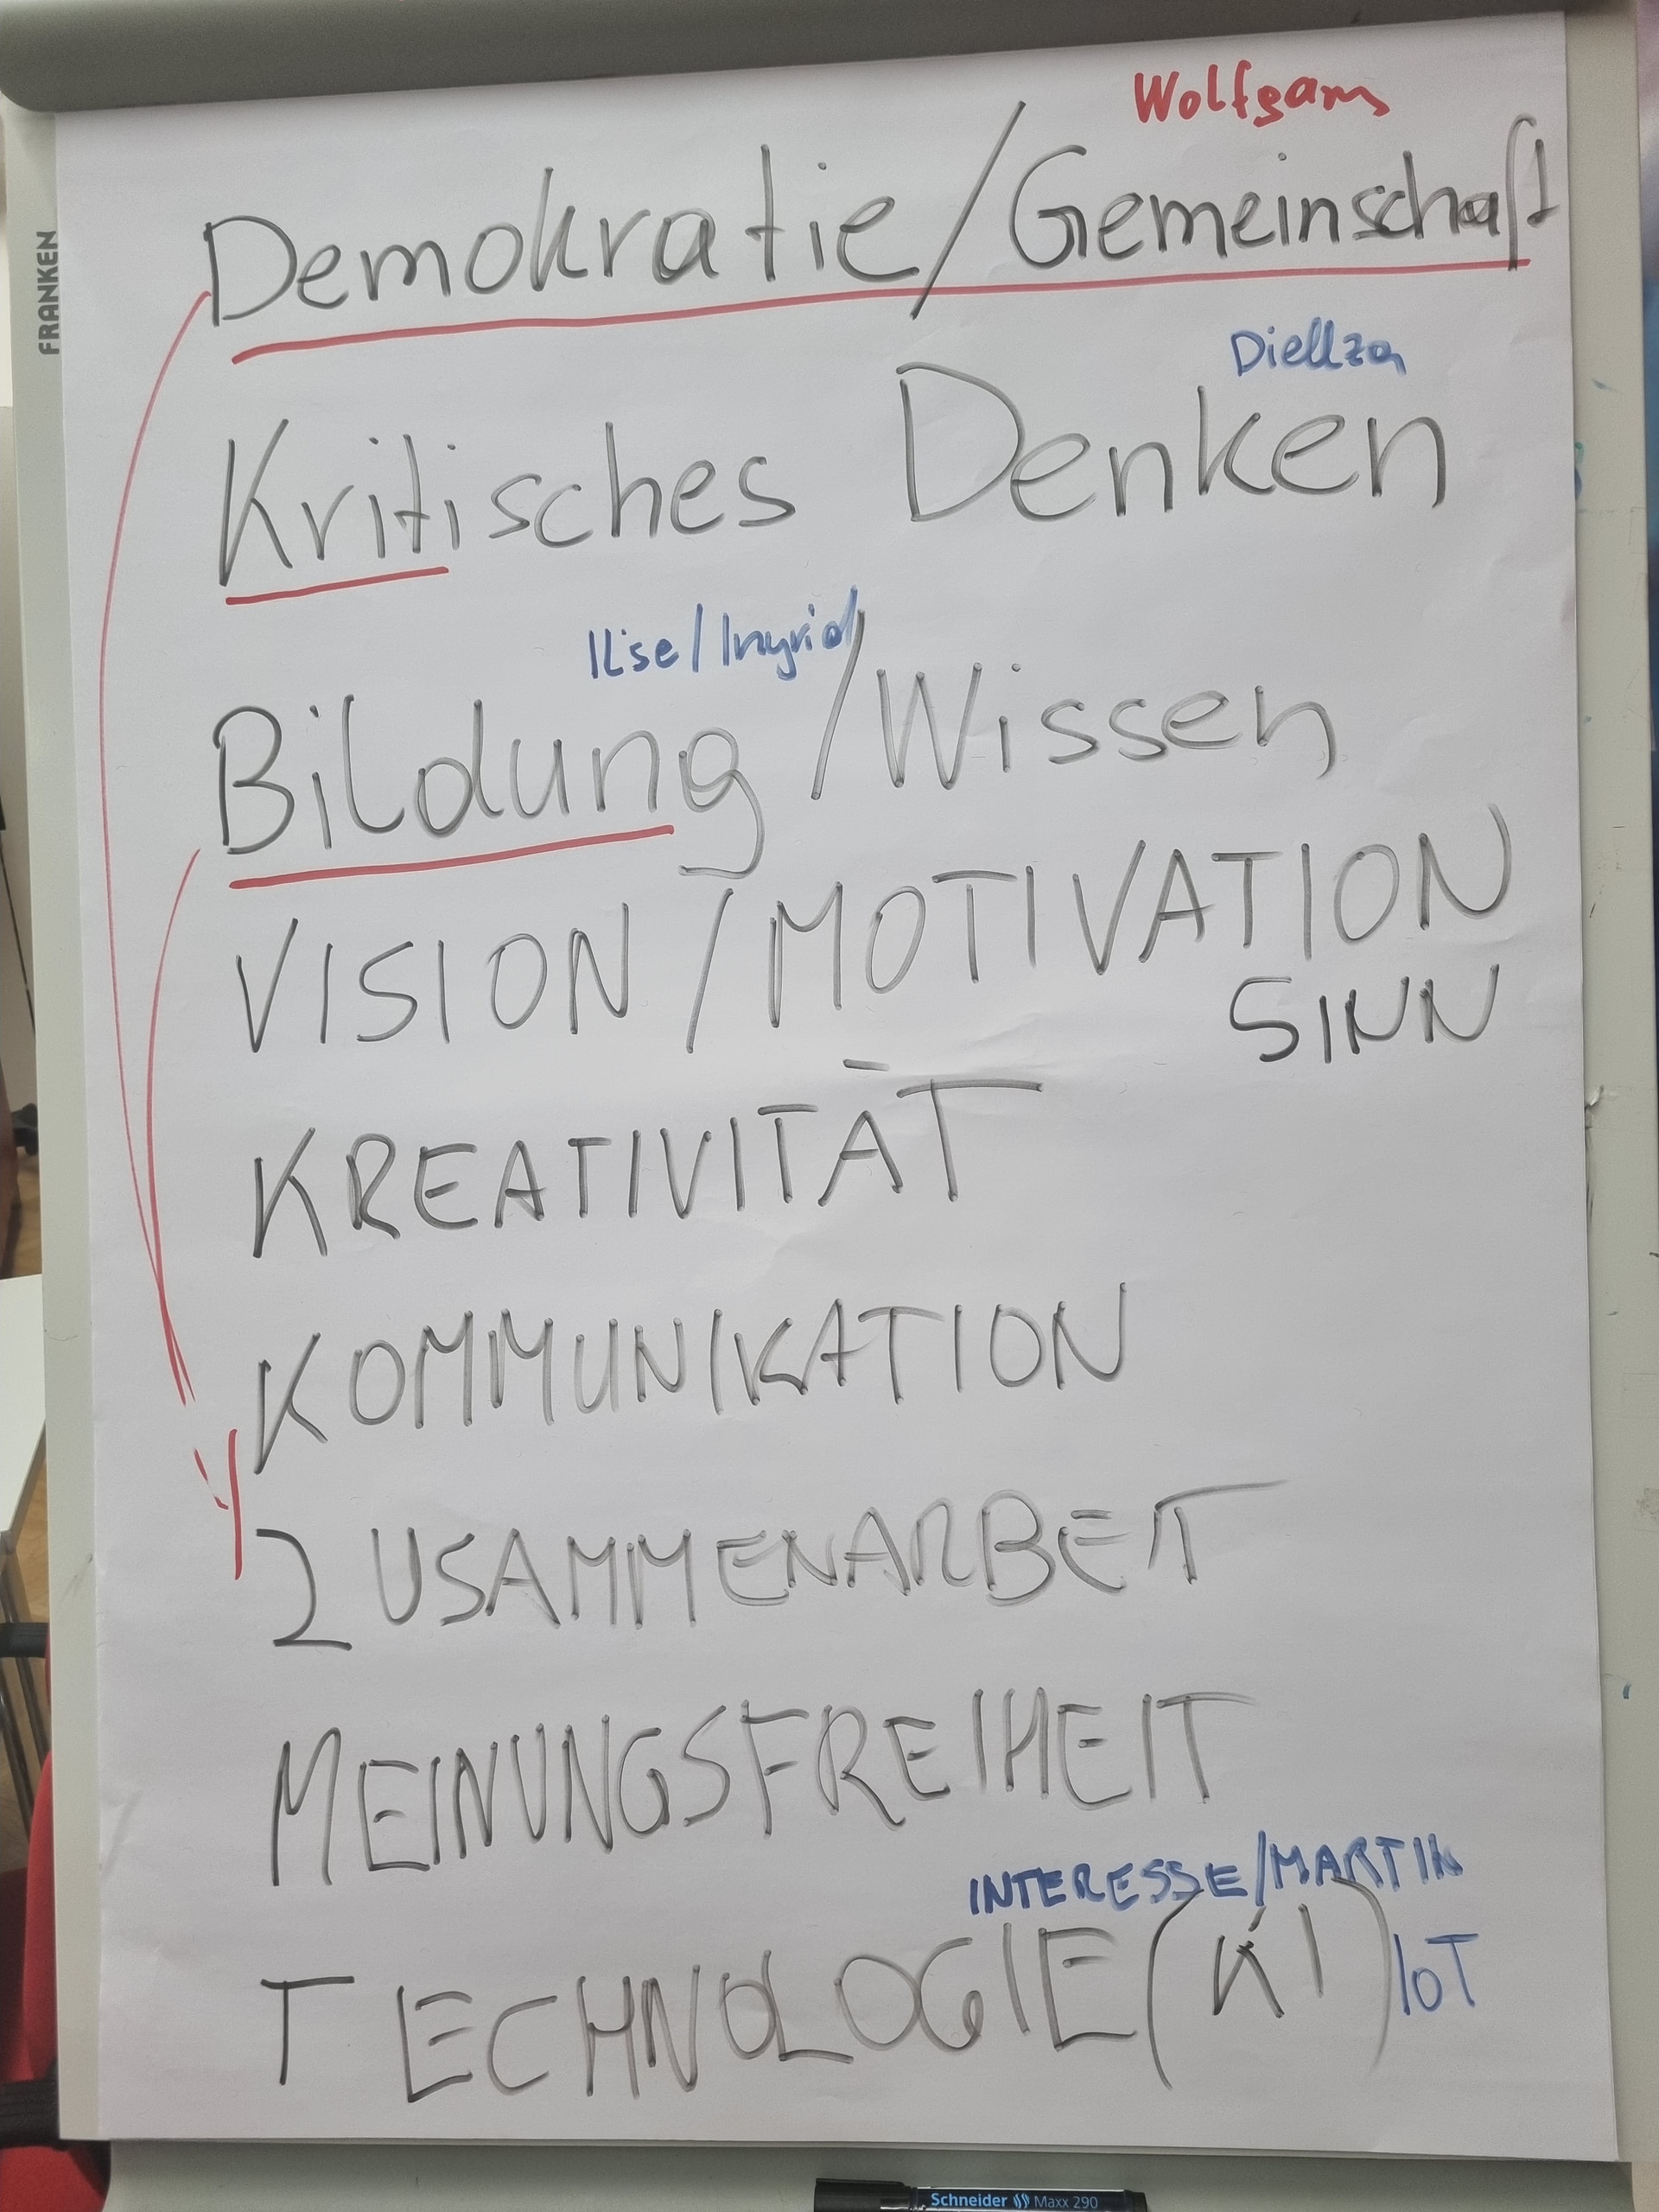 Wolfgang
Demokratie/Gemeinschaft
FRANKEN
Diellza
Kritisches Denken
Ilse/Ingrid
Bildung/Wissen
VISION/MOTIVATION
SINN
KREATIVITÄT
KOMMUNIKATION
ZUSAMMENARBEIT
MEINUNGSFREIHEIT
INTERESSE/MARTIN
TECHNOLOGIE (KI) IoT
Schneider Maxx 290